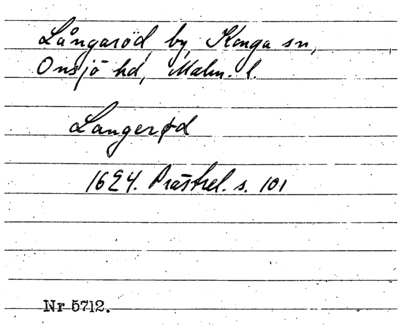 Långaröd by, Konga sn,
Onsjö hd, Malm. l.
Langerød
1624. Prästrel. s. 101
Nr 5712.